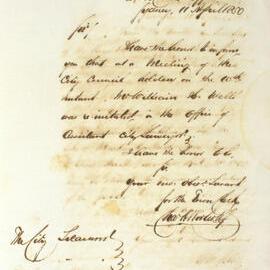 Sydney, 11 April 1850
Sir,
I have the honor to inform
you that at a Meeting of the
City Council held on the 10th
instant, Mr William H. Wells
was reinstated in the Office of
Assistant City Surveyor.
I have the honor &c.
Sir
your mo. Obt. Servant
for the Town Clerk
The City Treasurer